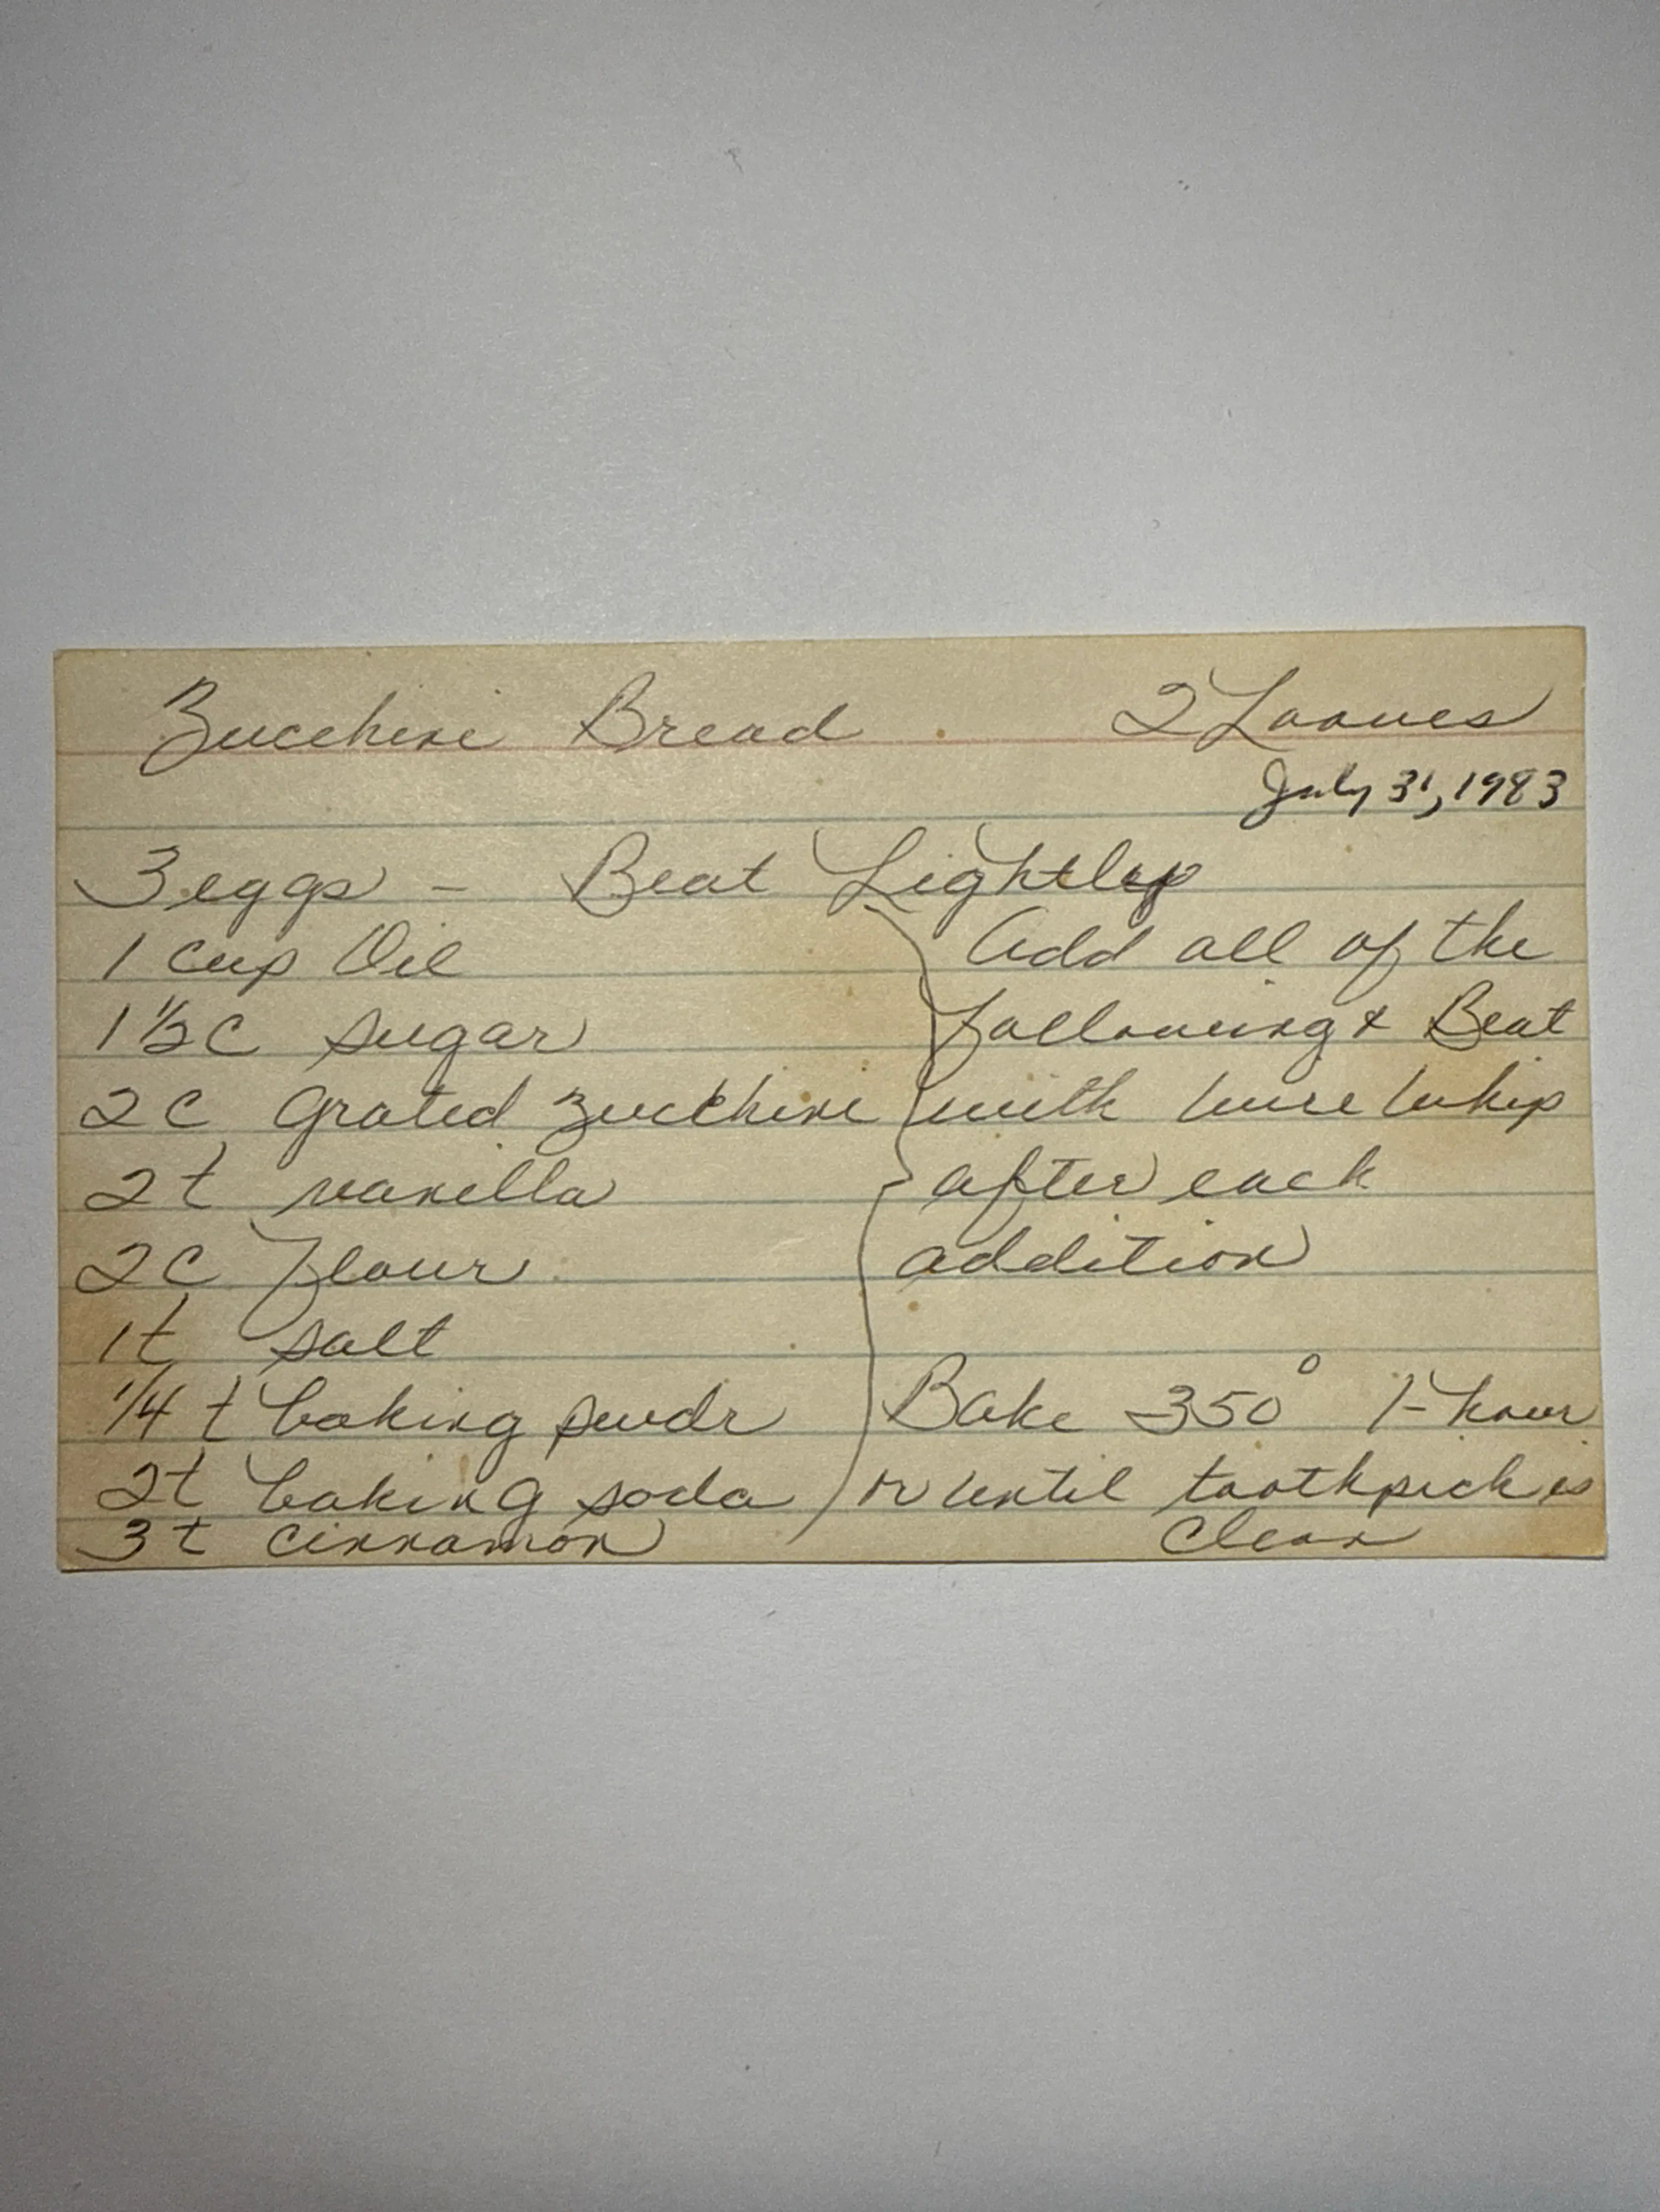 Zucchini Bread 2 Loaves
July 31, 1983
3 eggs - Beat Lightly
1 cup Oil Add all of the
1 1/2 C sugar following & Beat
2 C grated zucchini with wire whip
2 t vanilla after each
2 C flour addition
1 t salt
1/4 t baking pwdr Bake 350° 1-hour
2t baking soda or until toothpick is
3 t cinnamon clean